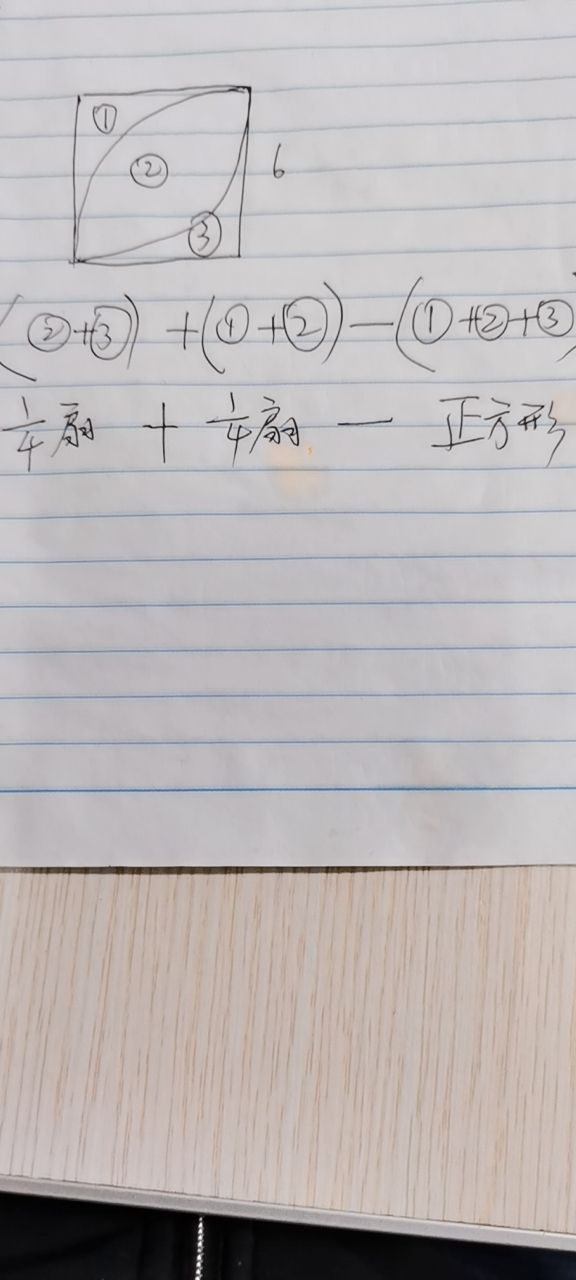 ①
② 6
③
(②+③)+(①+②)-(①+②+③)
1/4扇 + 1/4扇 - 正方形